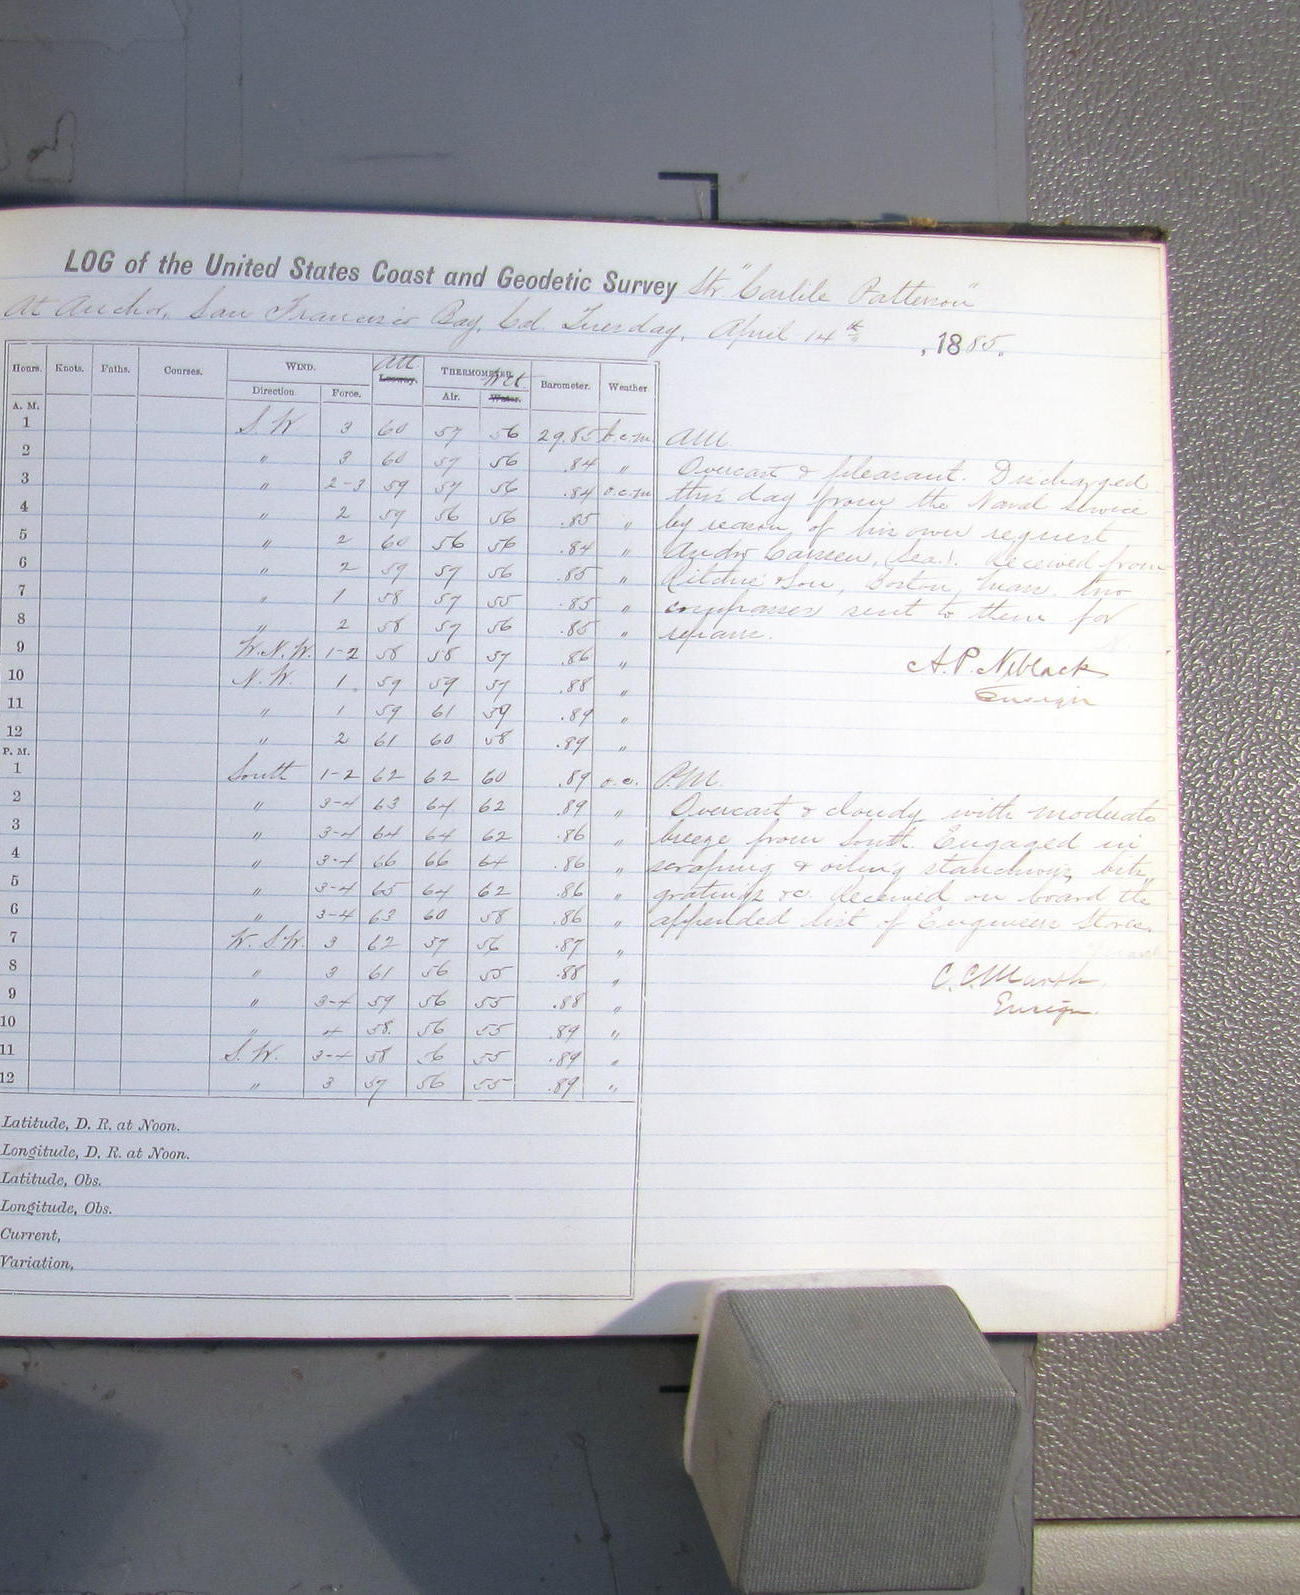 LOG of the United States Coast and Geodetic Survey Str. "Carlile Patterson"
At Anchor, San Francisco Bay, Cal. Tuesday, April 14th, 1885.
Hours. Knots. Faths. Courses. WIND. Att THERMOMETER. Barometer. Weather
Direction. Force. Leeway. Air. Wet Water.
A. M.
1 S. W 3 60 57 56 29.85 b.c.m
2 " 3 60 57 56 .84 "
3 " 2-3 59 57 56 .84 o.c.m
4 " 2 59 56 56 .85 "
5 " 2 60 56 56 .84 "
6 " 2 59 57 56 .85 "
7 " 1 58 57 55 .85 "
8 " 2 58 57 56 .85 "
9 W.N.W. 1-2 58 58 57 .86 "
10 N.W. 1 59 59 57 .88 "
11 " 1 59 61 59 .89 "
12 " 2 61 60 58 .89 "
P. M.
1 South 1-2 62 62 60 .89 o.c.
2 " 3-4 63 64 62 .89 "
3 " 3-4 64 64 62 .86 "
4 " 3-4 66 66 64 .86 "
5 " 3-4 65 64 62 .86 "
6 " 3-4 63 60 58 .86 "
7 W. S.W. 3 62 57 56 .87 "
8 " 3 61 56 55 .88 "
9 " 3-4 59 56 55 .88 "
10 " 4 58 56 55 .89 "
11 S. W. 3-4 58 56 55 .89 "
12 " 3 57 56 55 .89 "
AM.
Overcast & pleasant. Discharged
this day from the Naval Service
by reason of his own request
(Sea.). Received from
Ritchie & Son, Boston, Mass. two
compasses sent to them for
repairs.
A. P. Niblack
Ensign
P.M.
Overcast & cloudy with moderate
breeze from South. Engaged in
scraping & oiling stanchions, bitts,
gratings &c. Received on board the
appended list of Engineers Stores.
C. C. Marsh
Ensign.
Latitude, D. R. at Noon.
Longitude, D. R. at Noon.
Latitude, Obs.
Longitude, Obs.
Current,
Variation,